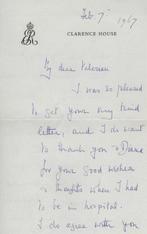 Feb. 7th 1967
CLARENCE HOUSE
My dear
I was so pleased
to get your very kind
letter, and I do want
to thank you &
for your good wishes
& thoughts when I had
to be in hospital.
I do agree with you